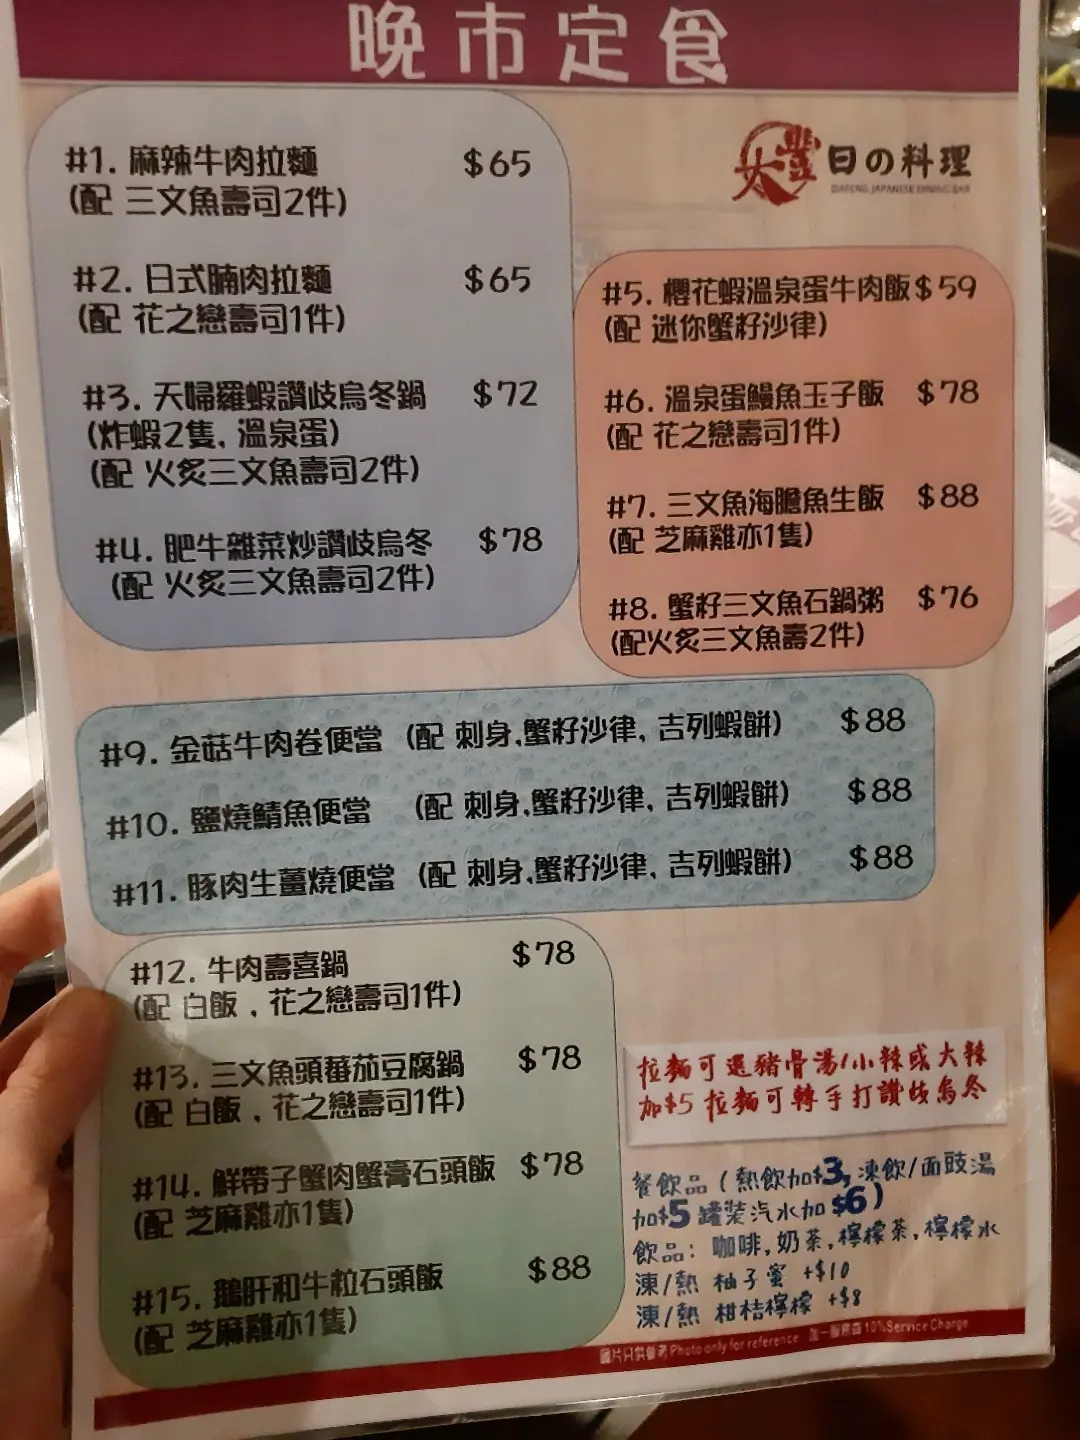 晚市定食
#1. 麻辣牛肉拉麵 $65
(配 三文魚壽司2件)
#2. 日式腩肉拉麵 $65
(配 花之戀壽司1件)
#3. 天婦羅蝦讚岐烏冬鍋 $72
(炸蝦2隻, 溫泉蛋)
(配 火炙三文魚壽司2件)
#4. 肥牛雜菜炒讚岐烏冬 $78
(配 火炙三文魚壽司2件)
大豐日の料理
DAFENG JAPANESE DINING BAR
#5. 櫻花蝦溫泉蛋牛肉飯 $59
(配 迷你蟹籽沙律)
#6. 溫泉蛋鰻魚玉子飯 $78
(配 花之戀壽司1件)
#7. 三文魚海膽魚生飯 $88
(配 芝麻雞亦1隻)
#8. 蟹籽三文魚石鍋粥 $76
(配火炙三文魚壽2件)
#9. 金菇牛肉卷便當 (配 刺身,蟹籽沙律, 吉列蝦餅) $88
#10. 鹽燒鯖魚便當 (配 刺身,蟹籽沙律, 吉列蝦餅) $88
#11. 豚肉生薑燒便當 (配 刺身,蟹籽沙律, 吉列蝦餅) $88
#12. 牛肉壽喜鍋 $78
(配 白飯 , 花之戀壽司1件)
#13. 三文魚頭蕃茄豆腐鍋 $78
(配 白飯 , 花之戀壽司1件)
#14. 鮮帶子蟹肉蟹膏石頭飯 $78
(配 芝麻雞亦1隻)
#15. 鵝肝和牛粒石頭飯 $88
(配 芝麻雞亦1隻)
拉麵可選豬骨湯/小辣或大辣
加$5 拉麵可轉手打讚岐烏冬
餐飲品 (熱飲加$3, 凍飲/面豉湯
加$5 罐裝汽水加 $6)
飲品: 咖啡, 奶茶, 檸檬茶, 檸檬水
凍/熱 柚子蜜 +$10
凍/熱 柑桔檸檬 +$8
圖片只供參考 Photo only for reference 加一服務費 10% Service Charge